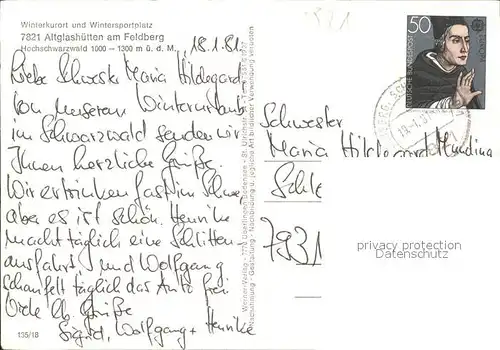 Winterkurort und Wintersportplatz
7821 Altglashütten am Feldberg
Hochschwarzwald 1000 – 1300 m ü. d. M.
18.1.81.
Liebe Schwester Maria Hildegard,
von unserem Winterurlaub
im Schwarzwald senden wir
Ihnen herzliche Grüße.
Wir ertrinken fast im Schnee,
aber es ist schön. Henrike
macht täglich eine Schlitten-
ausfahrt und Wolfgang
schaufelt täglich das Auto frei
Viele lb. Grüße
Sigrid, Wolfgang + Henrike
135/18
50
DEUTSCHE BUNDESPOST
Schwester
Maria Hildegard Mundina
Schle
7931
privacy protection
Datenschutz